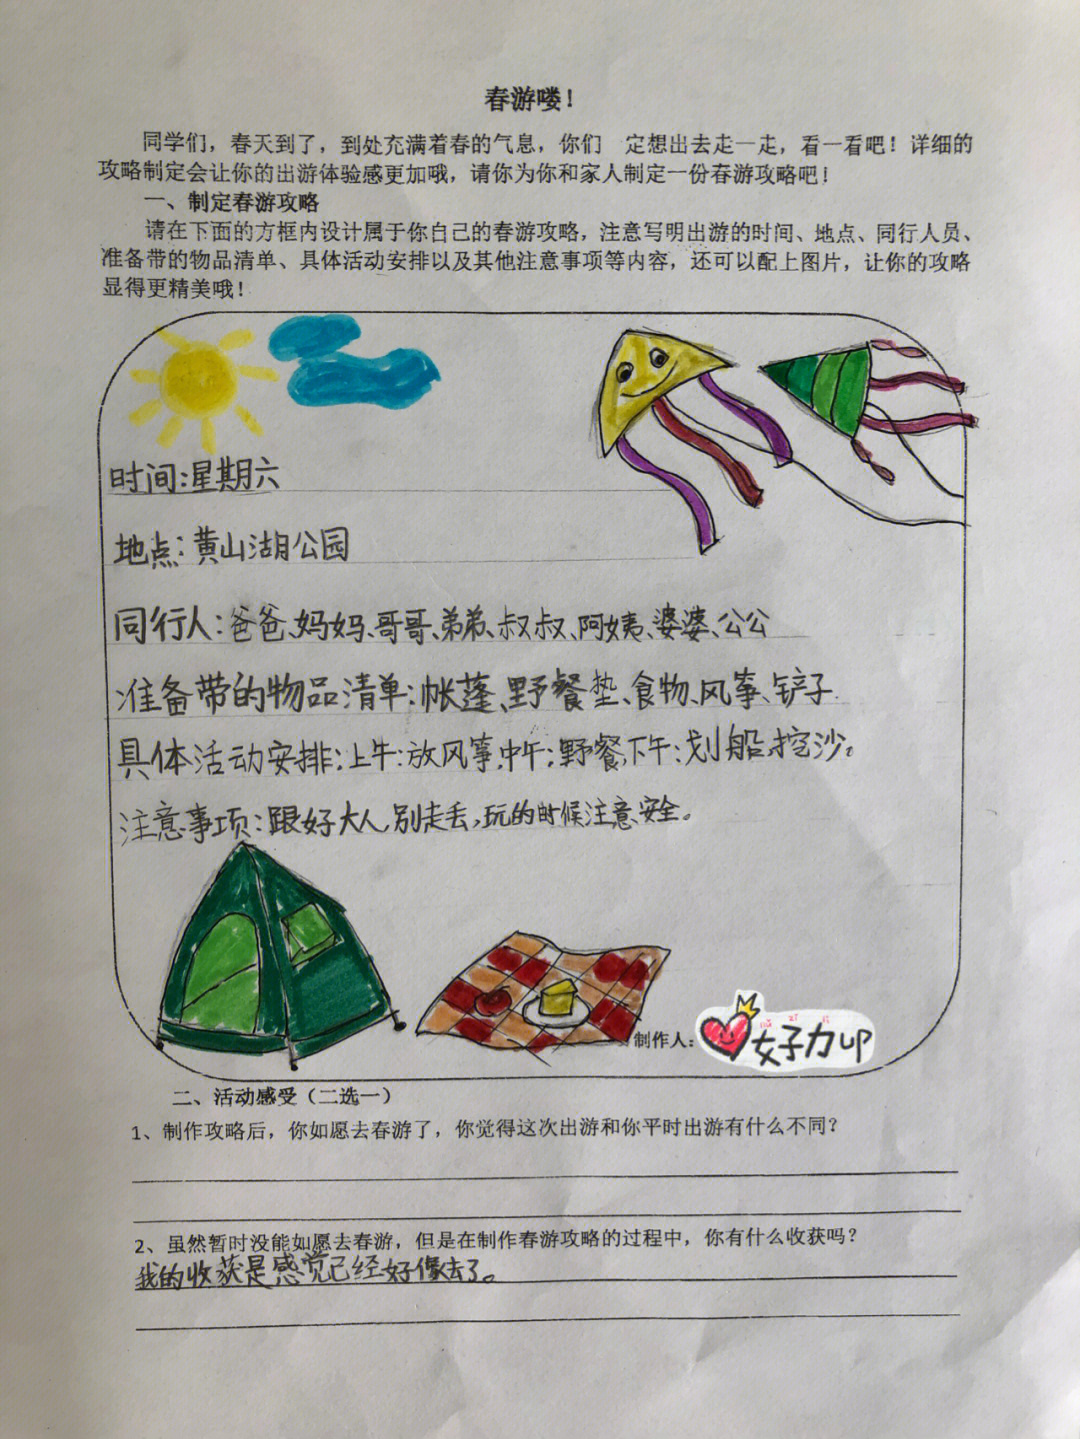 春游喽！
同学们，春天到了，到处充满着春的气息，你们 定想出去走一走，看一看吧！详细的
攻略制定会让你的出游体验感更加哦，请你为你和家人制定一份春游攻略吧！
一、制定春游攻略
请在下面的方框内设计属于你自己的春游攻略，注意写明出游的时间、地点、同行人员、
准备带的物品清单、具体活动安排以及其他注意事项等内容，还可以配上图片，让你的攻略
显得更精美哦！
时间：星期六
地点：黄山湖公园
同行人：爸爸、妈妈、哥哥、弟弟、叔叔、阿姨、婆婆、公公
准备带的物品清单：帐蓬、野餐垫、食物、风筝、铲子
具体活动安排：上午：放风筝，中午：野餐，下午：划船，挖沙。
注意事项：跟好大人，别走丢，玩的时候注意安全。
制作人：
女子力up
二、活动感受（二选一）
1、制作攻略后，你如愿去春游了，你觉得这次出游和你平时出游有什么不同？
2、虽然暂时没能如愿去春游，但是在制作春游攻略的过程中，你有什么收获吗？
我的收获是感觉已经好像去了。